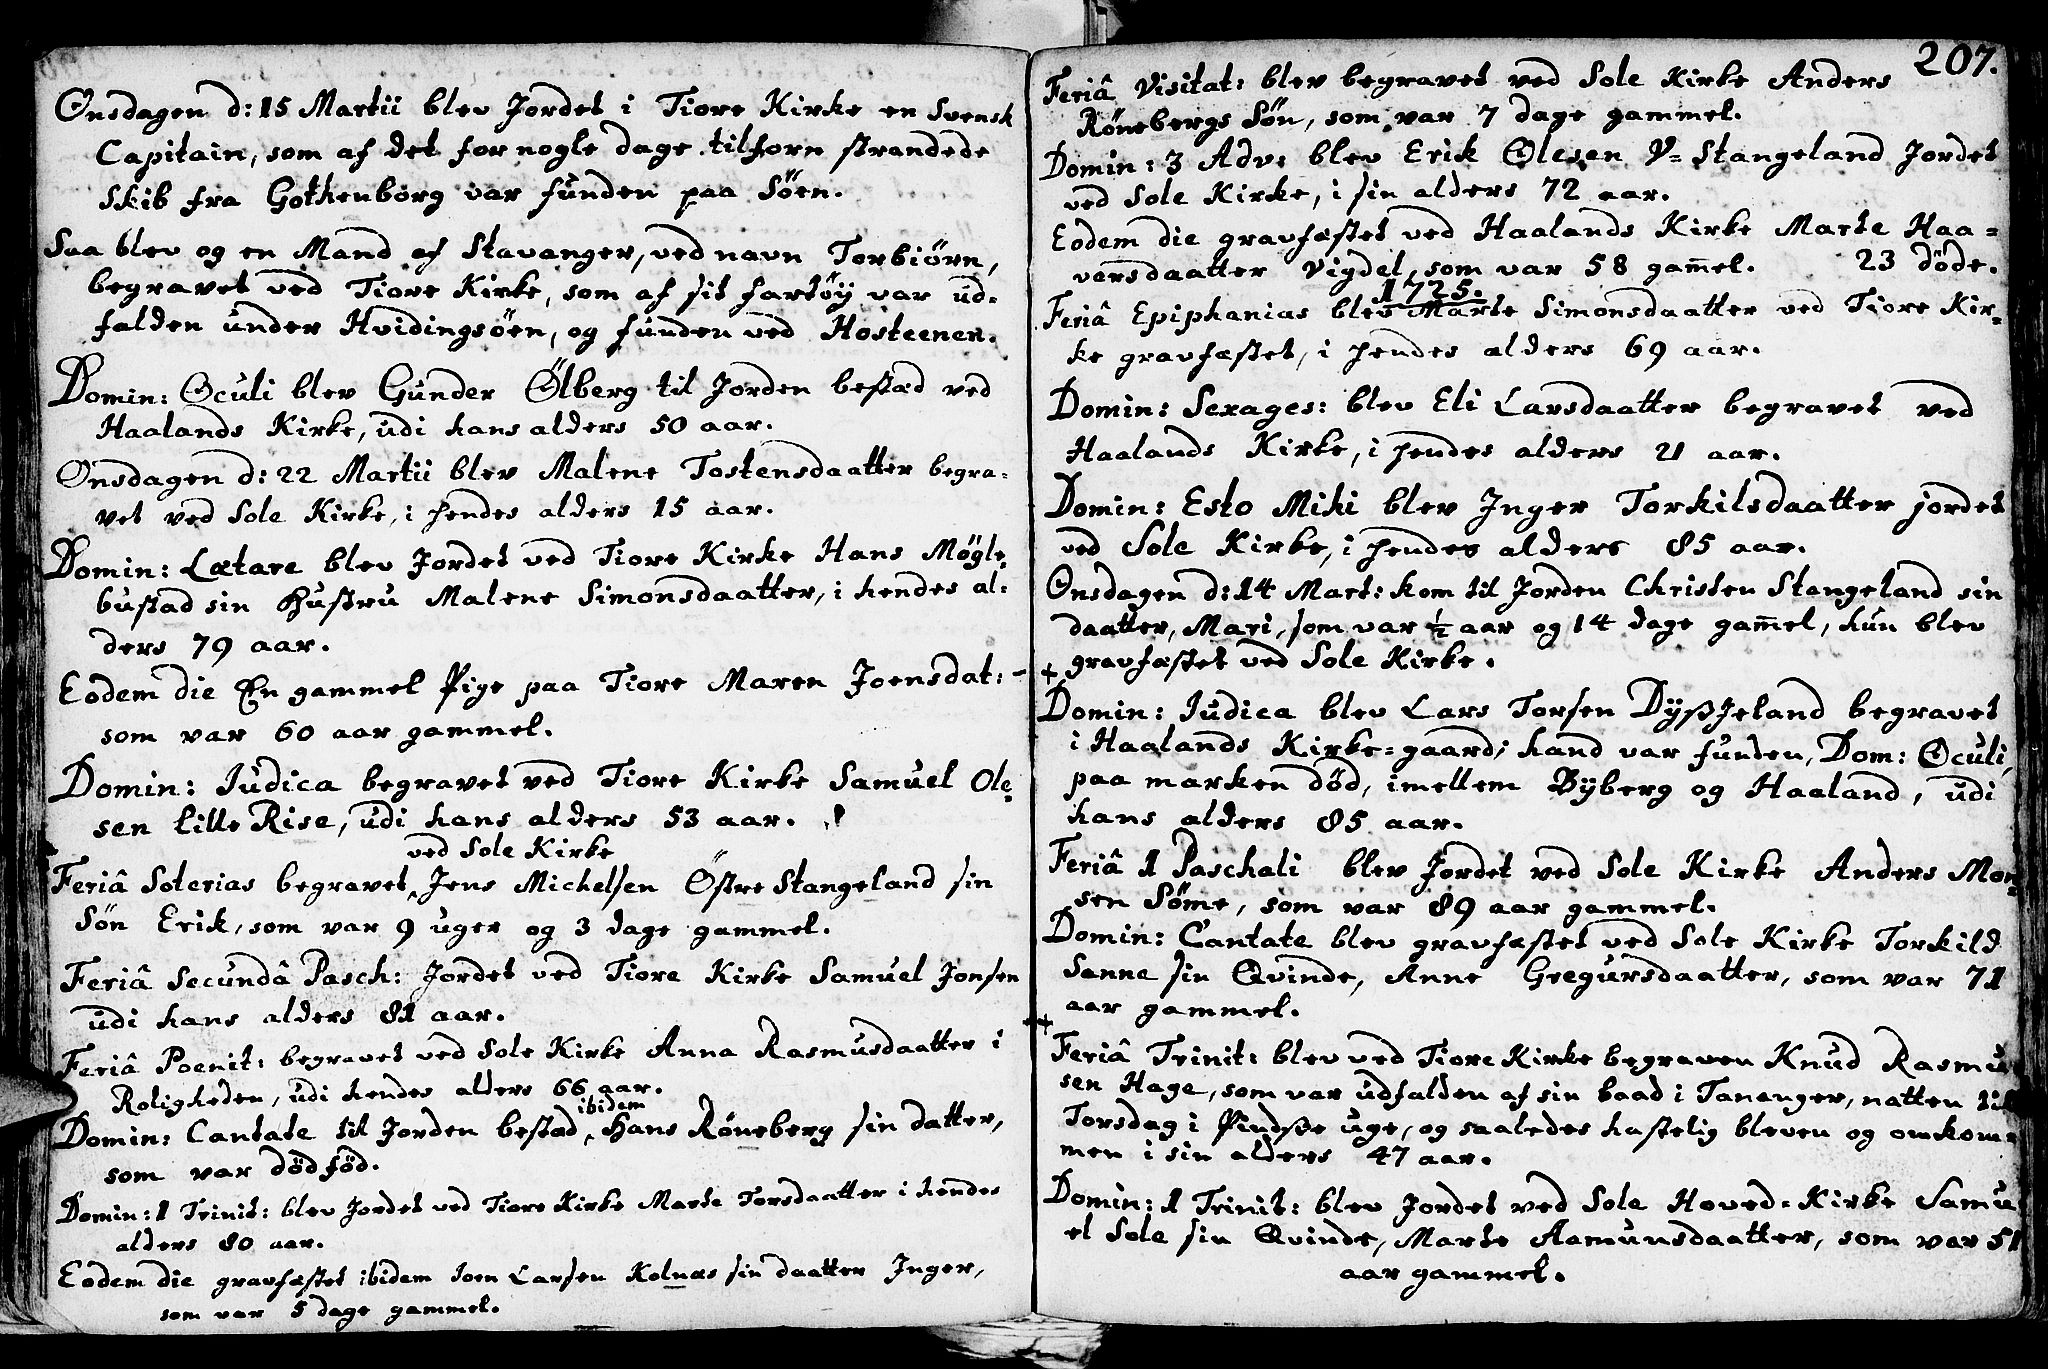 Onsdagen d: 15 Martii blev Jordet i Tiore Kirke en Svensk
Capitain, som af det for nogle dage tilforn strandede
Skib fra Gothenborg var funden paa Söen.
Saa blev og en Mand af Stavanger, ved navn Torbiörn,
begravet ved Tiore Kirke, som af sit fartöy var ud-
falden under Hvidingsöen, og funden ved Hosteenen.
Domin: Oculi blev Gunder Ölberg til Jorden bestæd ved
Haalands Kirke, udi hans alders 50 aar.
Onsdagen d: 22 Martii blev Malene Tostensdaatter begra-
vet ved Sole Kirke, i hendes alders 15 aar.
Domin: Lætare blev Jordet ved Tiore Kirke Hans Mögle-
bustad sin Hustru Malene Simonsdaatter, i hendes al-
ders 79 aar.
Eodem die En gammel Pige paa Tiore Maren Joensdat: -
som var 60 aar gammel.
Domin: Judica begravet ved Tiore Kirke Samuel Ole-
sen Lille Rise, udi hans alders 53 aar.
ved Sole Kirke
Feriâ Soterias begravet, Jens Michelsen Östre Stangeland sin
Sön Erik, som var 9 uger og 3 dage gammel.
Feriâ Secundâ Pasch: Jordet ved Tiore Kirke Samuel Jonsen
udi hans alders 81 aar.
Feriâ Poenit: begravet ved Sole Kirke Anna Rasmusdaatter i
Roligheden, udi hendes alders 66 aar.
ibidem
Domin: Cantate til Jorden bestæd, Hans Röneberg sin datter,
som var dödföd.
Domin: 1 Trinit: blev Jordet ved Tiore Kirke Marte Torsdaatter i hendes
alders 80 aar.
Eodem die gravfæstet ibidem Joen Larsen Kolnæs sin daatter Inger,
som var 5 dage gammel.
207.
Feriâ Visitat: blev begravet ved Sole Kirke Anders
Rönebergs Sön, som var 7 dage gammel.
Domin: 3 Adv: blev Erik Olesen V= Stangeland Jordet
ved Sole Kirke, i sin alders 72 aar.
Eodem die gravfæstet ved Haalands Kirke Marte Haa-
varsdaatter Vigdel, som var 58 gam̅el. 23 döde.
1725.
Feriâ Epiphanias blev Marte Simonsdaatter ved Tiore Kir-
ke gravfæstet, i hendes alders 69 aar.
Domin: Sexages: blev Eli Larsdaatter begravet ved
Haalands Kirke, i hendes alders 21 aar.
Domin: Esto Mihi blev Inger Torkilsdaatter jordet
ved Sole Kirke, i hendes alders 85 aar.
Onsdagen d: 14 Mart: kom til Jorden Christen Stangeland sin
daatter, Mari, som var ½ aar og 14 dage gam̅el, hun blev
+ gravfæstet ved Sole Kirke.
Domin: Judica blev Lars Torsen Dyßjeland begravet
i Haalands Kirke-gaard; hand var funden, Dom: Oculi,
paa marken död, imellem Byberg og Haaland, udi
hans alders 85 aar.
Feriâ 1 Paschali blev Jordet ved Sole Kirke Anders Mon-
sen Söme, som var 89 aar gammel.
Domin: Cantate blev gravfæstet ved Sole Kirke Torkild
Sanne sin Qvinde, Anne Gregursdaatter, som var 71
aar gammel.
++
Feriâ Trinit: blev ved Tiore Kirke begraven Knud Rasmu-
sen Hage, som var udfalden af sin baad i Tananger, natten til
Torsdag i Pindsße uge, og saaledes hastelig bleven og omkom-
men i sin alders 47 aar.
Domin: 1 Trinit: blev Jordet ved Sole Hoved-Kirke Samu
el Sole sin Qvinde, Marte Aamunsdaatter, som var 51
aar gammel.